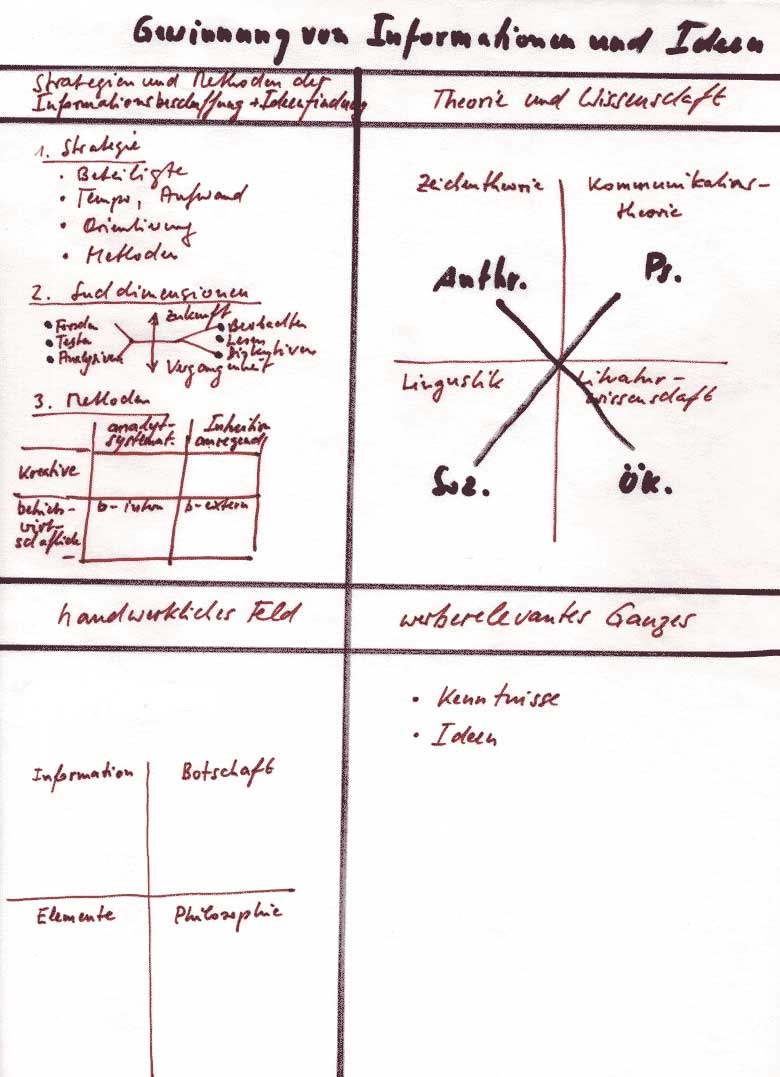 Gewinnung von Informationen und Ideen
Strategien und Methoden der
Informationsbeschaffung + Ideenfindung
1. Strategie
• Beteiligte
• Tempo, Aufwand
• Orientierung
• Methoden
2. Suchdimensionen
Zukunft
• Fonden
• Testen
• Analysieren
• Beobachten
• Lesen
Vergangenheit
3. Methoden
analyt-
systemat.
Intuition
anregend
Kreative
betriebs-
wirt-
schaftliche
b-intern
b-extern
Theorie und Wissenschaft
Zeichentheorie
Kommunikations-
theorie
Anthr.
Ps.
Lingustik
Literatur-
wissenschaft
Soz.
Ök.
handwerkliches Feld
Information
Botschaft
Elemente
Philosophie
werberelevantes Ganzes
• Kenntnisse
• Ideen